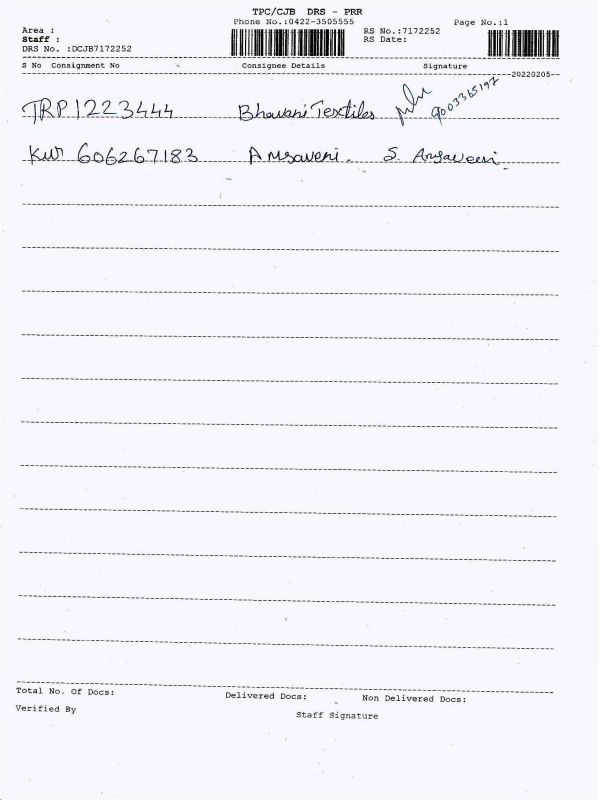 TPC/CJB DRS - PRR
Phone No.:0422-3505555
Page No.:1
Area :
RS No.:7172252
Staff :
RS Date:
DRS No. :DCJB7172252
S No Consignment No Consignee Details Signature
20220205
TRP1223444 Bhavani Textiles 9003365197
KW 606267183 Amsaveni. S. Amsaveni
Total No. Of Docs: Delivered Docs: Non Delivered Docs:
Verified By Staff Signature